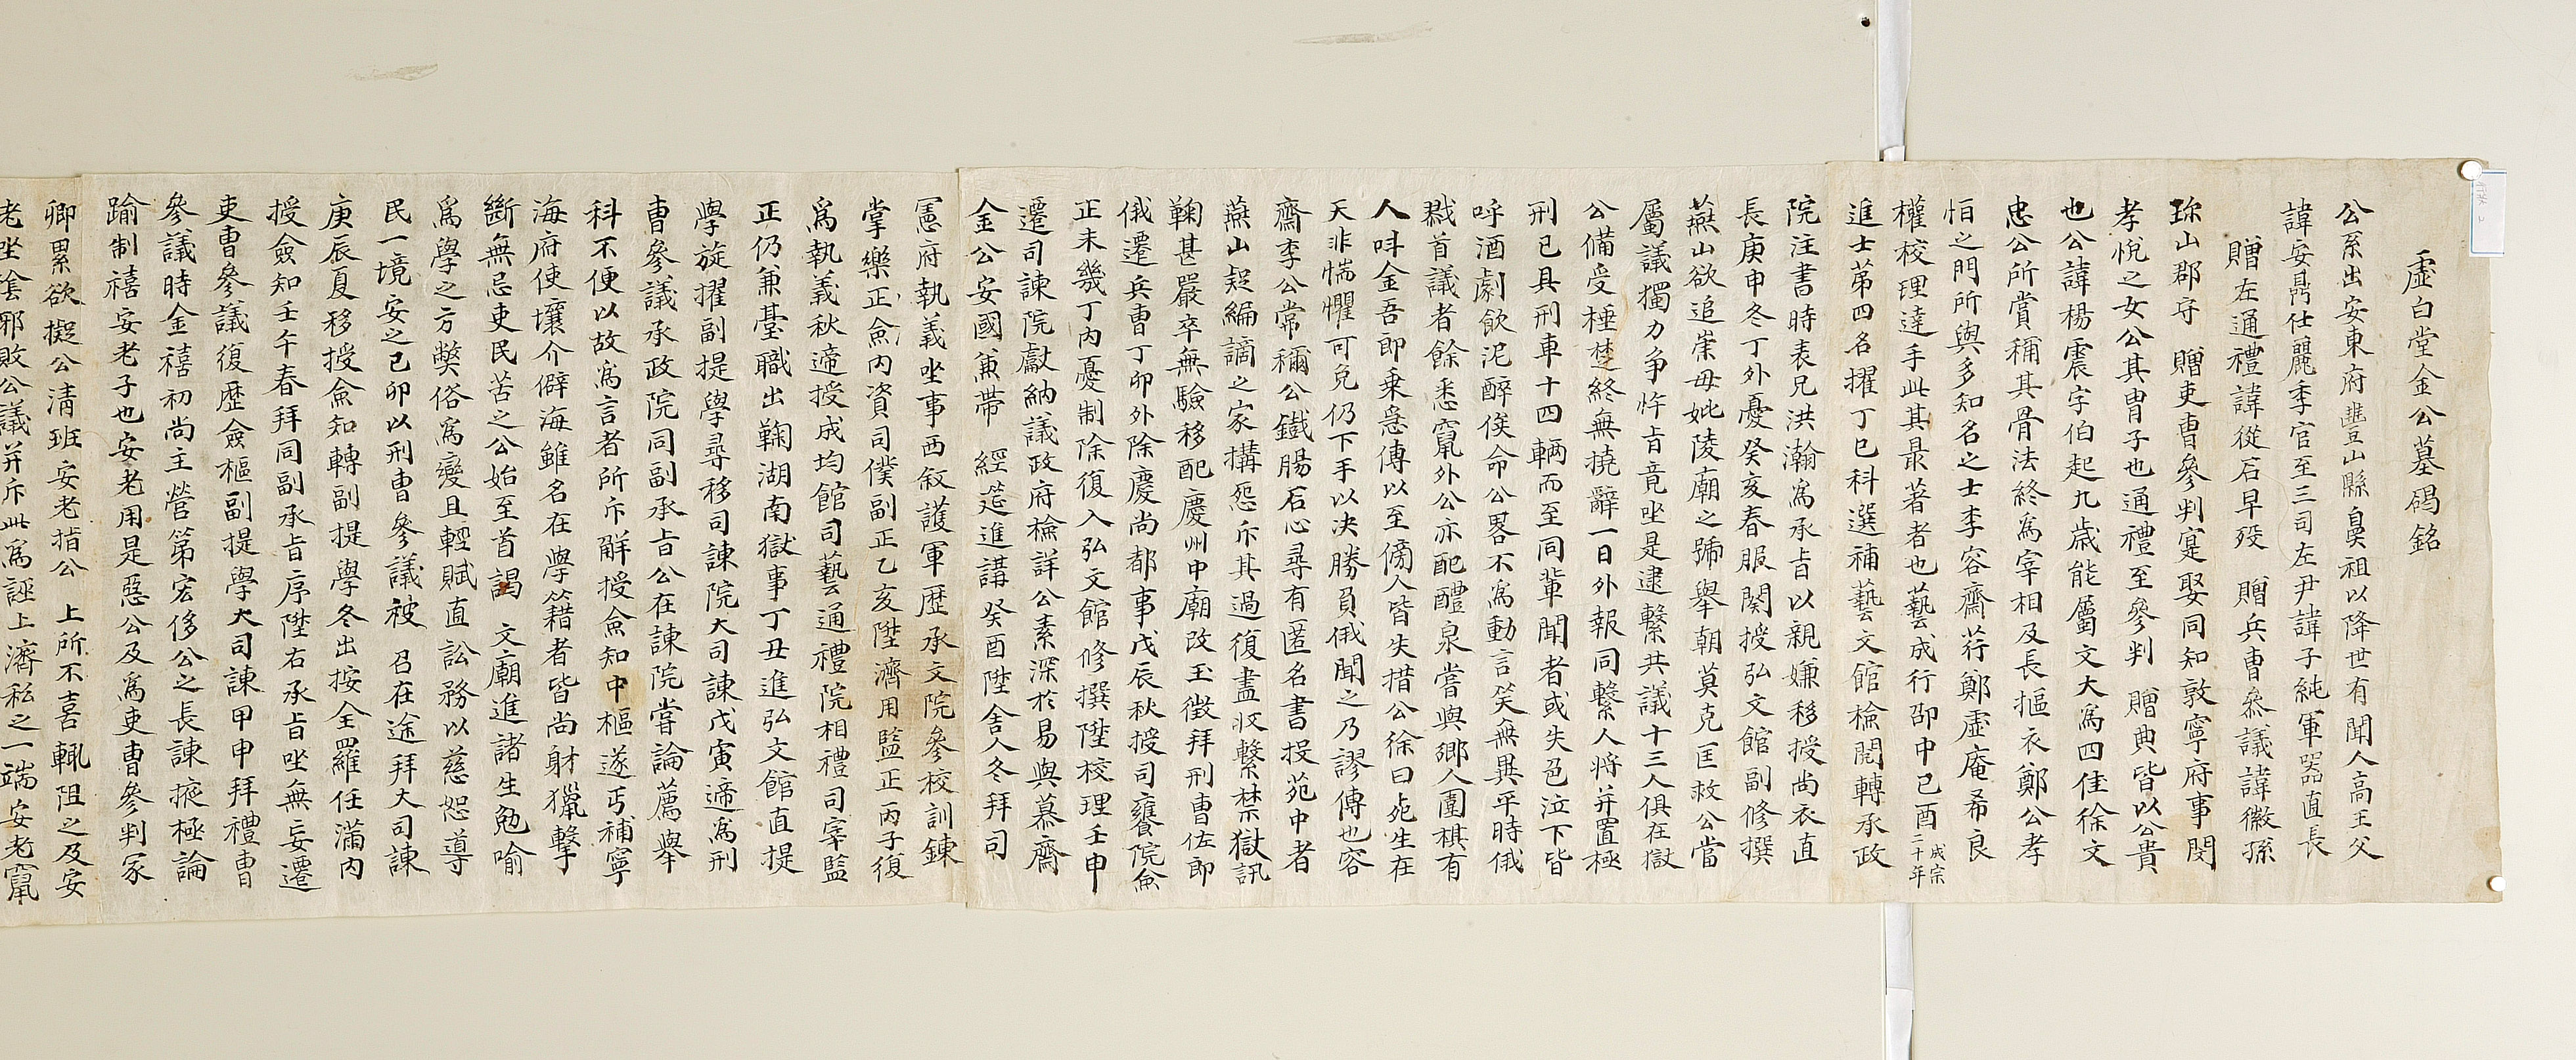 虛白堂金公墓碣銘
公系出安東府豊山縣鼻祖以降世有聞人高王父
諱安鼎仕麗季官至三司左尹諱子純軍器直長
贈左通禮諱從石早歿 贈兵曹叅議諱徽孫
珎山郡守 贈吏曹參判寔娶同知敦寧府事閔
孝悅之女公其冑子也通禮至參判 贈典皆以公貴
也公諱楊震字伯起九歲能屬文大爲四佳徐文
忠公所賞稱其骨法終爲宰相及長摳衣鄭公孝
恒之門所與多知名之士李容齋荇鄭虛庵希良
權校理達手此其最著者也藝成行卲中己酉成宗二十年
進士第四名擢丁巳科選補藝文館檢閱轉承政
院注書時表兄洪瀚爲承旨以親嫌移授尚衣直
長庚申冬丁外憂癸亥春服闋授弘文館副修撰
燕山欲追崇母妣陵廟之號舉朝莫克匡救公當
屬議獨力争忤旨竟坐是逮繫共議十三人俱在獄
公備受棰楚終無撓辭一日外報同繫人將并置極
刑已具刑車十四輛而至同輩聞者或失色泣下皆
呼酒劇飮泥醉俟命公畧不爲動言笑無異平時俄
戮首議者餘悉竄外公亦配醴泉嘗與鄉人圍棋有
人叫金吾郎乗忽傳以至傍人皆失措公徐曰死生在
天非惴懼可免仍下手以决勝負俄聞之乃謬傳也容
齋李公常稱公鐵膓石心尋有匿名書投苑中者
燕山疑編謫之家搆怨斥其過復盡收繫禁獄訊
鞠甚嚴卒無驗移配慶州中廟改玉徵拜刑曹佐郎
俄遷兵曹丁卯外除慶尚都事戊辰秋授司饔院僉
正未幾丁内憂制除復入弘文館修撰陞校理壬申
遷司諫院獻納議政府檢詳公素深於易與慕齋
金公安國兼帶 經筵進講癸酉陞舍人冬拜司
憲府執義坐事西叙護軍歷承文院參校訓鍊
掌樂正僉内資司僕副正乙亥陞濟用監正丙子復
爲執義秋遞授成均館司藝通禮院相禮司宰監
正仍兼臺職出鞫湖南獄事丁丑進弘文館直提
學旋擢副提學尋移司諫院大司諫戊寅遞爲刑
曹參議承政院同副承旨公在諫院嘗論薦舉
科不便以故爲言者所斥觧授僉知中樞遂丐補寧
海府使壤介僻海雖名在學籍者皆尚射獵擊
斷無忌吏民苦之公始至首謁 文廟進諸生勉喻
爲學之方獘俗爲變且輕賦直訟務以慈恕導
民一境安之己卯以刑曹參議被 召在途拜大司諫
庚辰夏移授僉知轉副提學冬出按全羅任滿内
授僉知壬午春拜同副承旨序陞右承旨坐無妄遷
吏曹參議復歷僉樞副提學大司諫甲申拜禮曹
參議時金禧初尚主營第宏侈公之長諫掖極論
踰制禧安老子也安老用是惡公及爲吏曹參判冢
卿累欲擬公清班安老指公 上所不喜輒阻之及安
老坐隂邪敗公議并斥此爲誣上濟私之一端安老竄